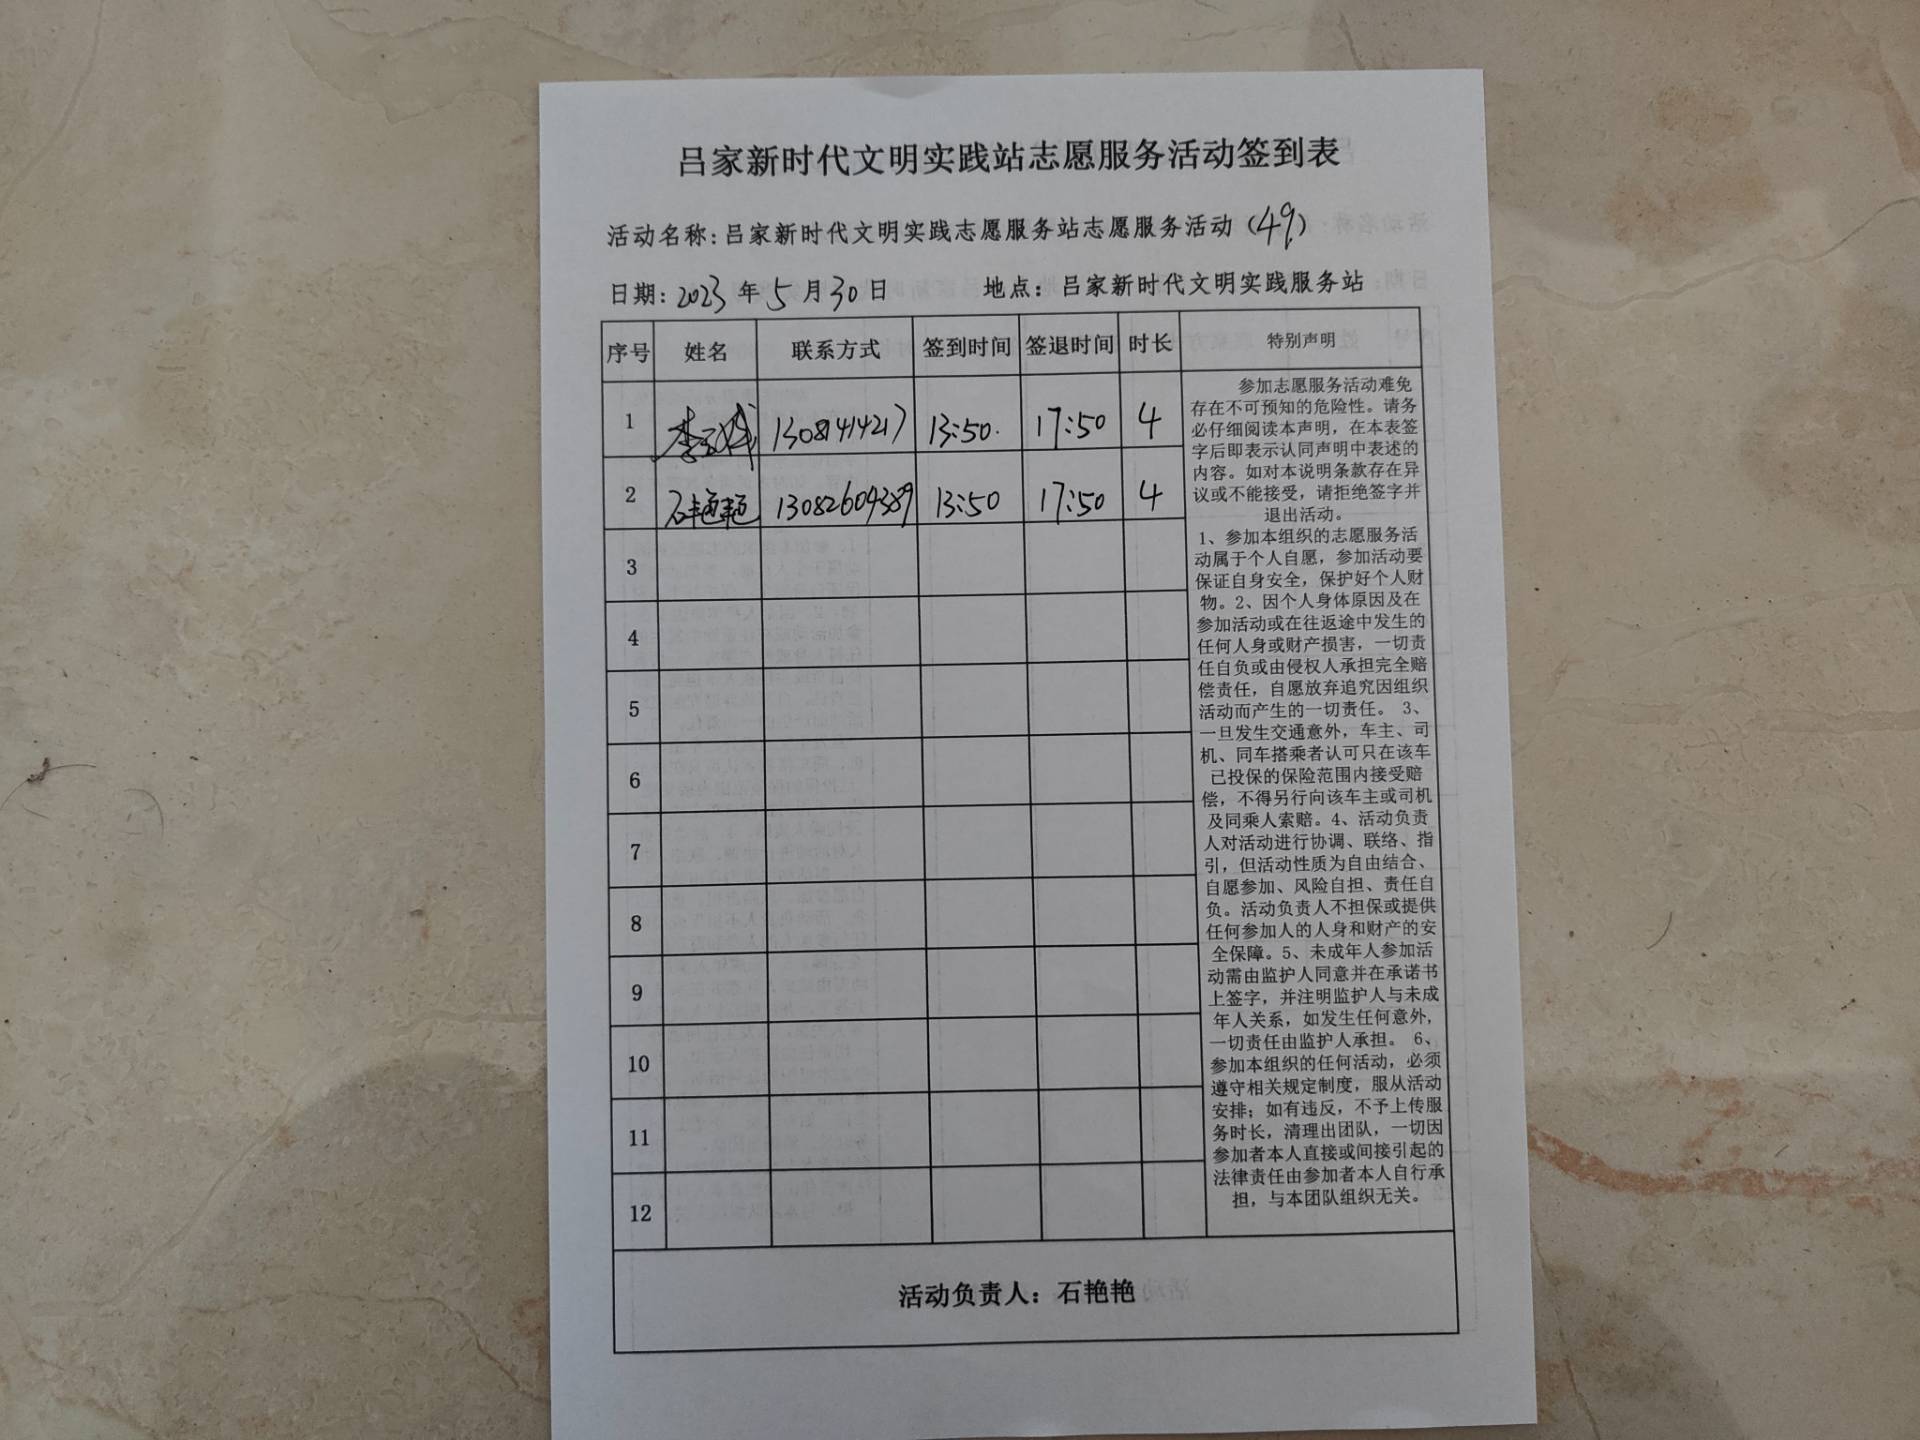 吕家新时代文明实践站志愿服务活动签到表
活动名称：吕家新时代文明实践志愿服务站志愿服务活动（49）
日期：2023 年 5 月 30 日 地点：吕家新时代文明实践服务站
序号 姓名 联系方式 签到时间 签退时间 时长 特别声明
1 13:50 17:50 4
2 石艳艳 13082604389 13:50 17:50 4
3
4
5
6
7
8
9
10
11
12
参加志愿服务活动难免
存在不可预知的危险性。请务
必仔细阅读本声明，在本表签
字后即表示认同声明中表述的
内容。如对本说明条款存在异
议或不能接受，请拒绝签字并
退出活动。
1、参加本组织的志愿服务活
动属于个人自愿，参加活动要
保证自身安全，保护好个人财
物。2、因个人身体原因及在
参加活动或在往返途中发生的
任何人身或财产损害，一切责
任自负或由侵权人承担完全赔
偿责任，自愿放弃追究因组织
活动而产生的一切责任。 3、
一旦发生交通意外，车主、司
机、同车搭乘者认可只在该车
已投保的保险范围内接受赔
偿，不得另行向该车主或司机
及同乘人索赔。4、活动负责
人对活动进行协调、联络、指
引，但活动性质为自由结合、
自愿参加、风险自担、责任自
负。活动负责人不担保或提供
任何参加人的人身和财产的安
全保障。5、未成年人参加活
动需由监护人同意并在承诺书
上签字，并注明监护人与未成
年人关系，如发生任何意外，
一切责任由监护人承担。 6、
参加本组织的任何活动，必须
遵守相关规定制度，服从活动
安排；如有违反，不予上传服
务时长，清理出团队，一切因
参加者本人直接或间接引起的
法律责任由参加者本人自行承
担，与本团队组织无关。
活动负责人：石艳艳